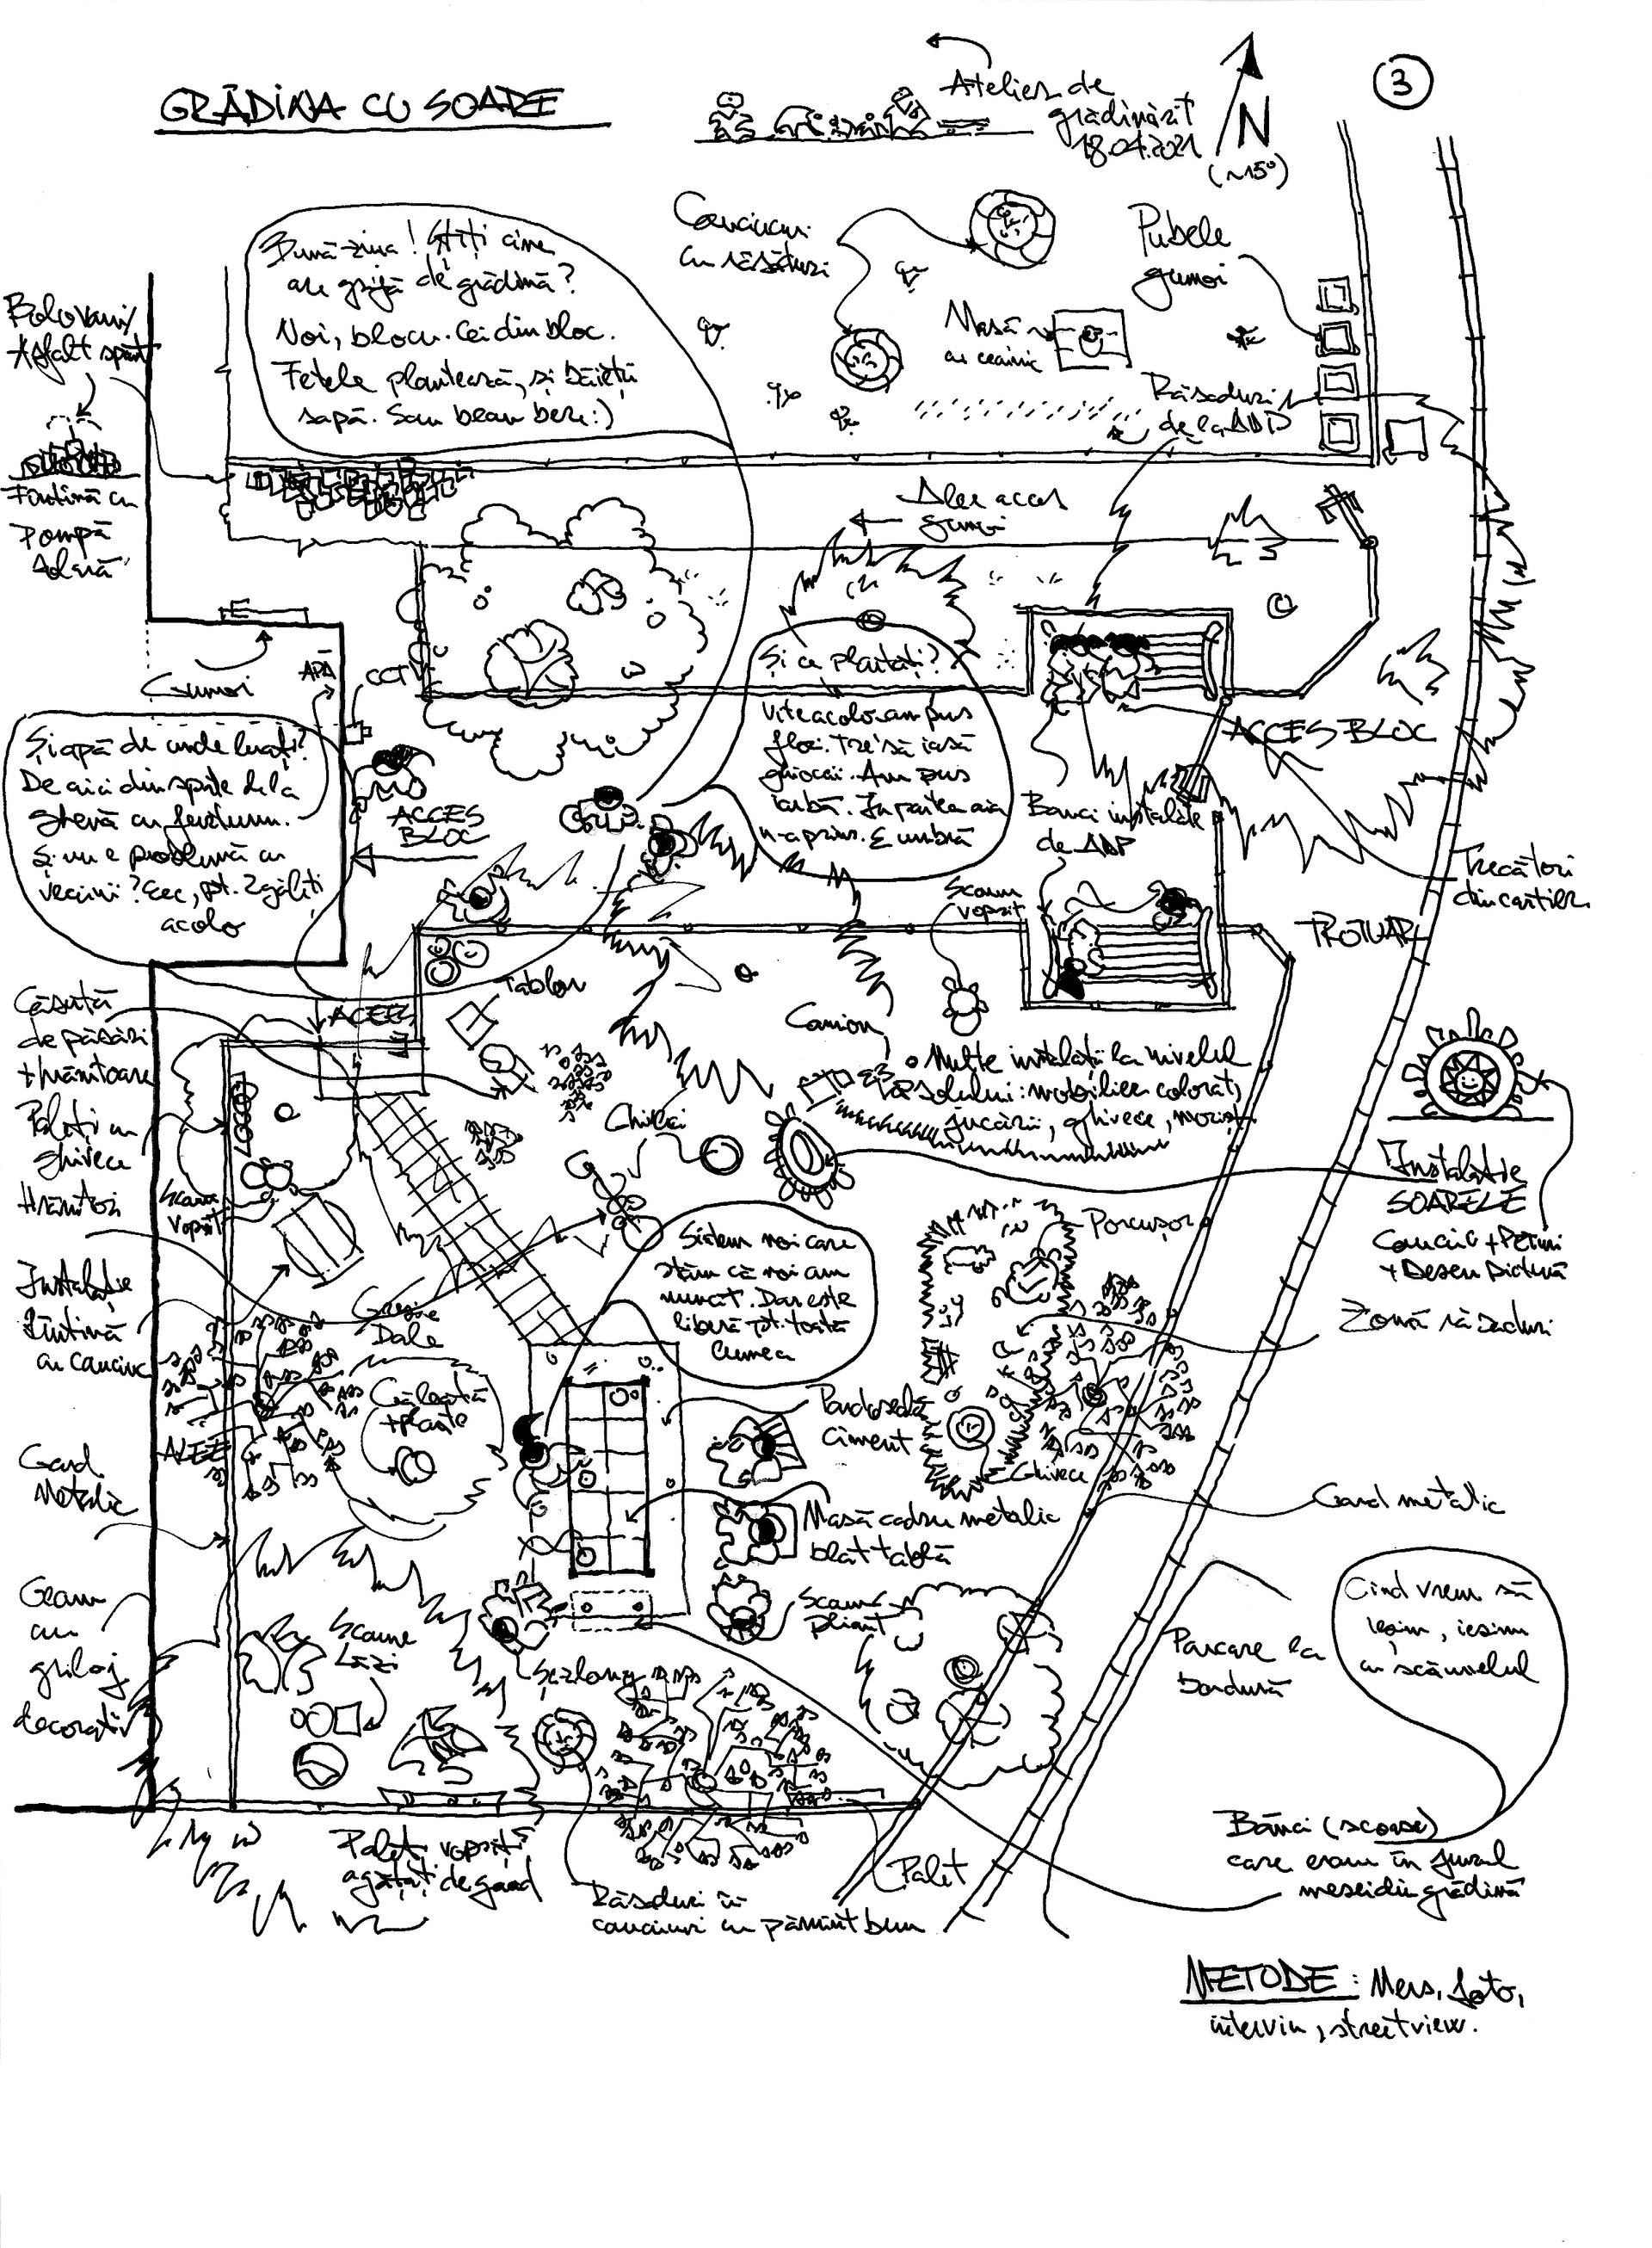 GRĂDINA CU SOARE
Atelier de
grădinărit
18.04.2021
N
(~15°)
3
Bună-ziua! Știți cine
are grijă de grădină?
Noi, blocu. Cei din bloc.
Fetele plantează, și băieții
sapă. Sau beau bere:)
Cauciucuri
cu răsăduri
Pubele
gunoi
Masă
cu ceainic
Răsaduri
de la ADP
Bolovani/
Asfalt spart
Fântână cu
Pompă
Alee acces
gunoi
Gunoi
APĂ
CCTV
Și ce plantați?
Uite acolo am pus
flori. Tre' să iasă
ghiocei. Am pus
iarbă. În partea aia
n-a prins. E umbră
ACCES BLOC
Și apă de unde luați?
De aici din spate de la
ghenă cu furtunu.
Și nu e problemă cu
vecinii? Eec, pt. 2 găleți
acolo
ACCES
BLOC
Bănci instalate
de ADP
Trecători
din cartier
Scaun
vopsit
TROTUAR
Căsuță
de păsări
+ hrănitoare
ACCES
Tablou
Camion
• Multe instalații la nivelul
solului: mobilier colorat,
jucării, ghivece,
Paleți cu
ghivece
Ghivece
Scaun
vopsit
Instalație
SOARELE
Cauciuc + Petini
+ Desen Pictură
Porcușor
Sîntem noi care
stăm că noi am
muncit. Dar este
liberă pt. toată
lumea
Instalație
fîntînă
cu cauciuc
Gresie
Dale
Zonă răsaduri
Găleată
+ plante
Pardoseală
ciment
Ghivece
ALEE
Gard
Metalic
Gard metalic
Masă cadru metalic
blat tablă
Cînd vrem să
ieșim, ieșim
cu scăunelul
Geam
cu
grilaj
decorativ
Scaune
Lăzi
Scaune
pliant
Parcare la
bordură
Șezlong
Bănci (scoase)
care erau în jurul
mesei din grădină
Paleți vopsiți
agățați de gard
Palet
Răsaduri în
cauciuri cu pămînt bun
METODE: Mers, foto,
interviu, streetview.